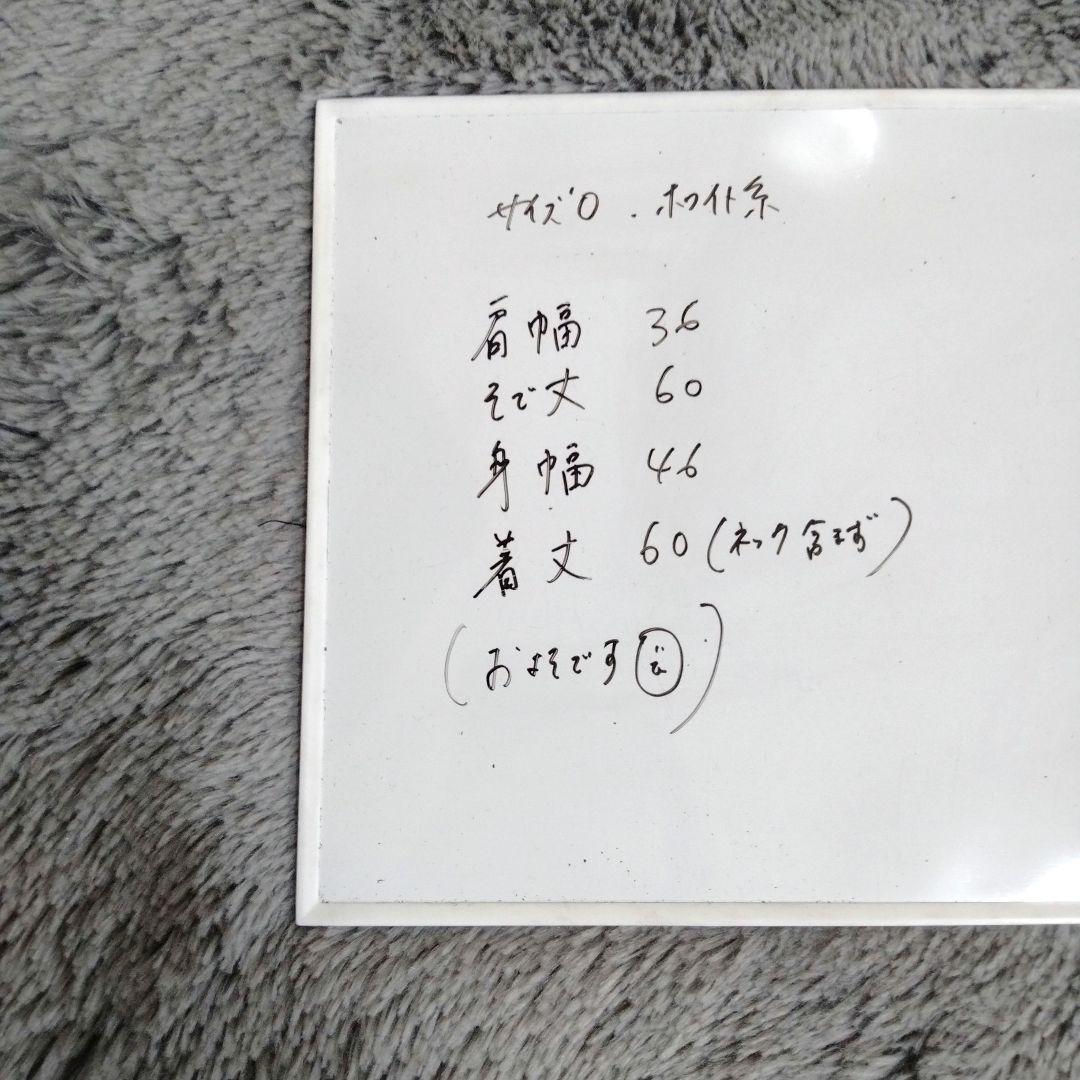 サイズ0.ホワイト系
肩幅 36
そで丈 60
身幅 46
着丈 60(ネック含まず)
(およそです)